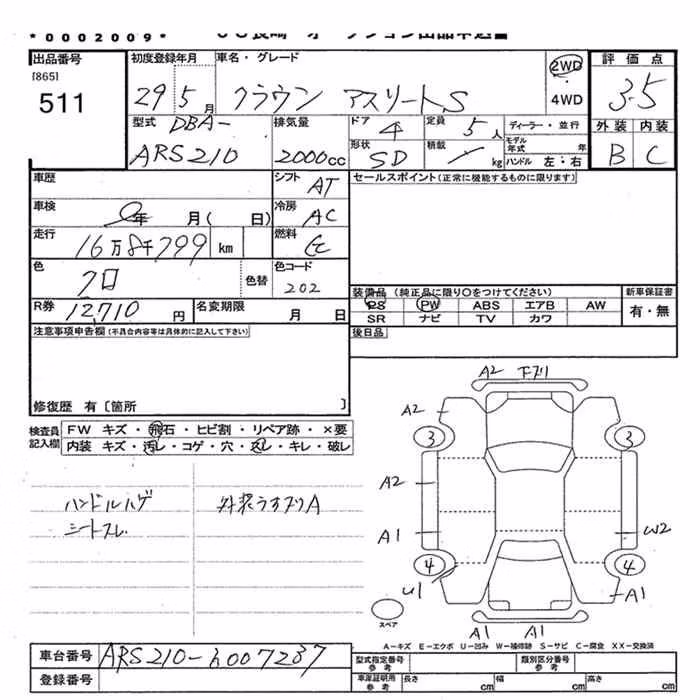 *0002009*
出品番号
[865]
511
初度登録年月
29 5月
車名・グレード
クラウン アスリートS
2WD
4WD
評価点
3.5
型式 DBA-
ARS210
排気量
2000cc
ドア 4
定員 5人
形状 SD
積載 kg
ディーラー・並行
モデル年式 年
ハンドル 左・右
外装 内装
B C
車歴
シフト AT
セールスポイント(正常に機能するものに限ります)
車検 0年 月( 日)
冷房 AC
走行 16万8千799 km
燃料
色 クロ
色替
色コード 202
R券 12,710円
名変期限 月 日
装備品 (純正品に限り○をつけてください)
PS PW ABS エアB AW
SR ナビ TV カワ
新車保証書
有・無
注意事項申告欄(不具合内容等は具体的に記入して下さい)
後日品
修復歴 有〔箇所 〕
検査員記入欄
FW キズ・飛石・ヒビ割・リペア跡・×要
内装 キズ・汚レ・コゲ・穴・スレ・キレ・破レ
ハンドルハゲ
シートスレ
外装うすズリA
A2 下ズリ
A2
3 3
A2
A1 W2
4 4
U1 A1
A1 A1
スペア
A-キズ E-エクボ U-凹み W-補修跡 S-サビ C-腐食 XX-交換済
車台番号 ARS210-6007237
登録番号
型式指定番号 参考
類別区分番号 参考
車庫証明用 参考
長さ cm 幅 cm 高さ cm